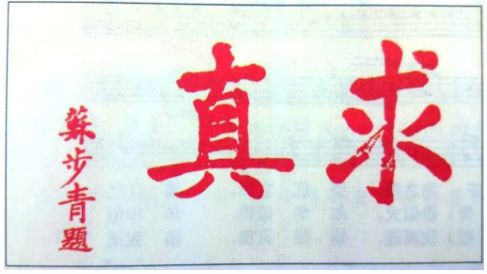 求真
蘇步青題